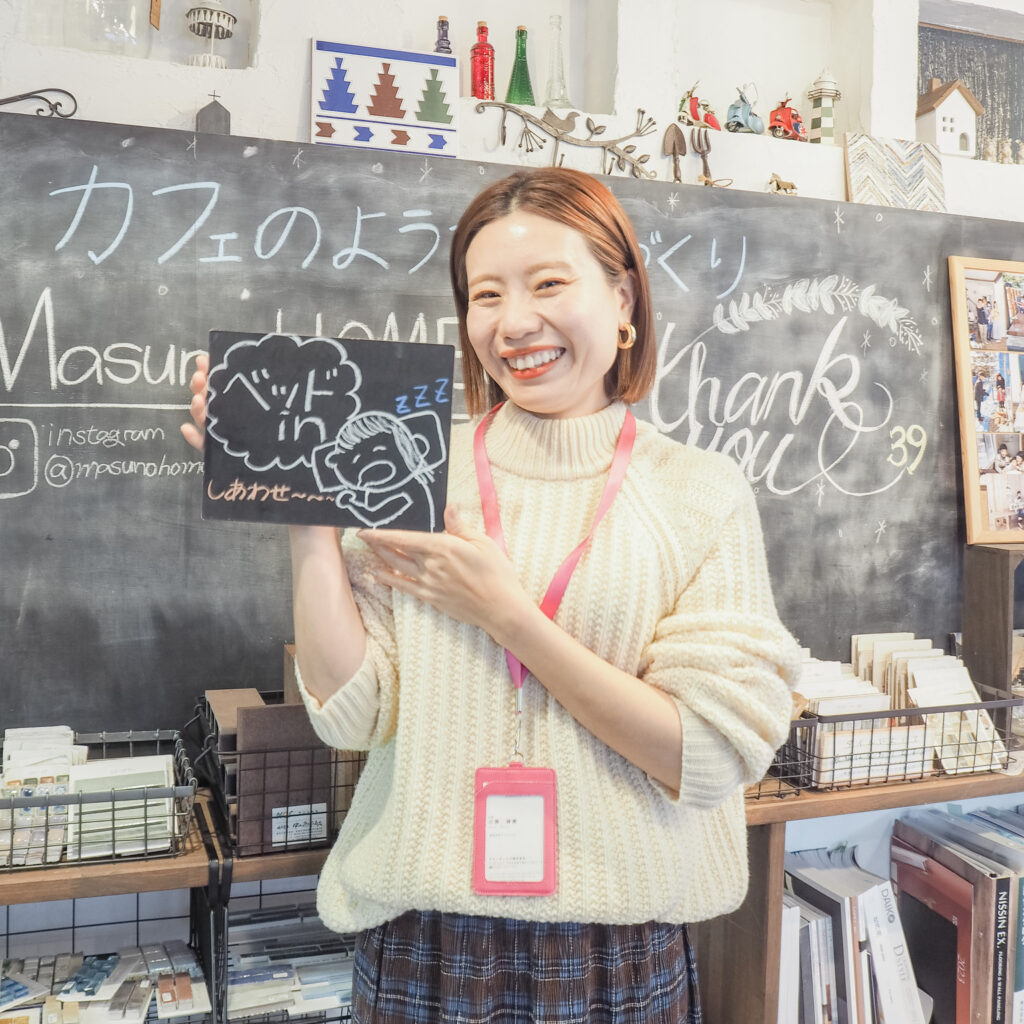 カフェのよう
づくり
Masuno HOME
Thank
you
39
instagram
@masunohome
ベッド
in
zzz
しあわせ～～～
DAIKO
NISSIN EX.
FLOORING & WALL PANELING